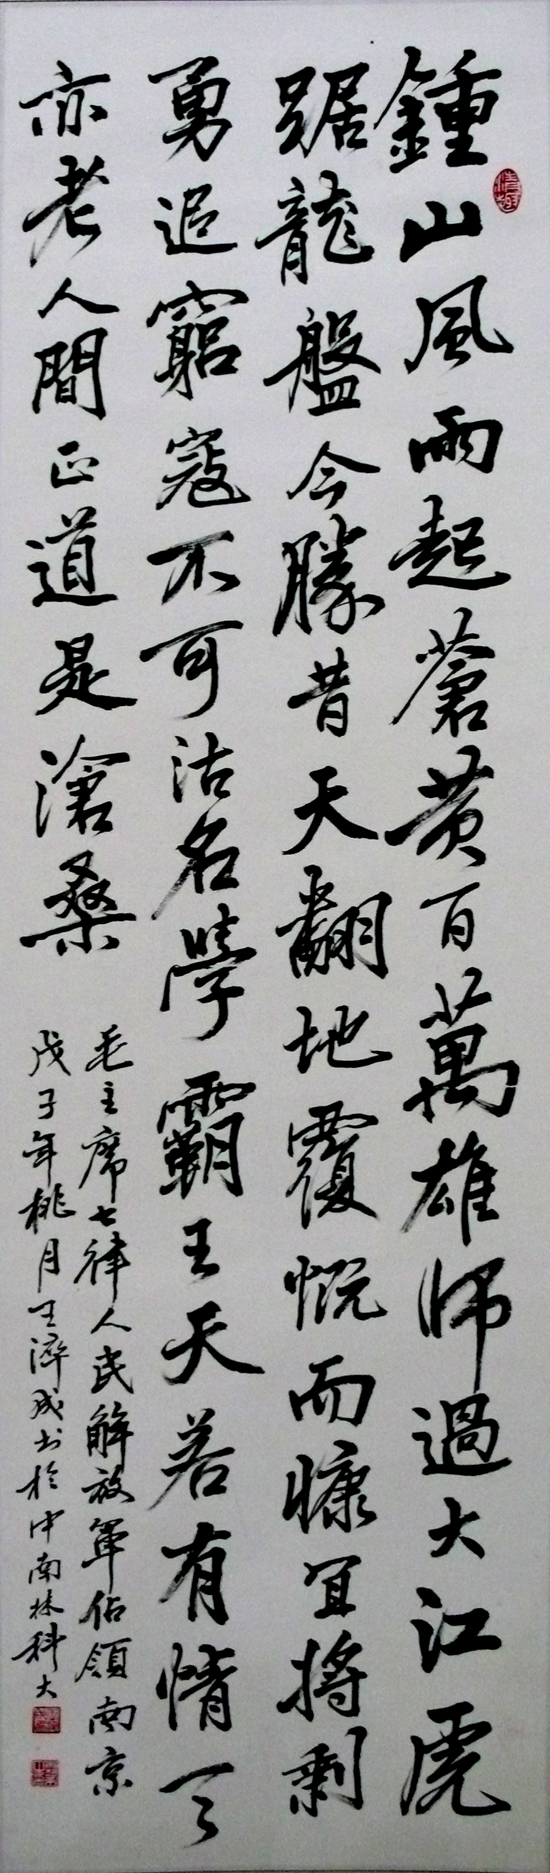 鍾山風雨起蒼黄百萬雄師過大江虎
踞龍盤今勝昔天翻地覆慨而慷宜將剩
勇追窮寇不可沽名學霸王天若有情天
亦老人間正道是滄桑
毛主席七律人民解放軍佔領南京
戊子年桃月王成书於中南林科大